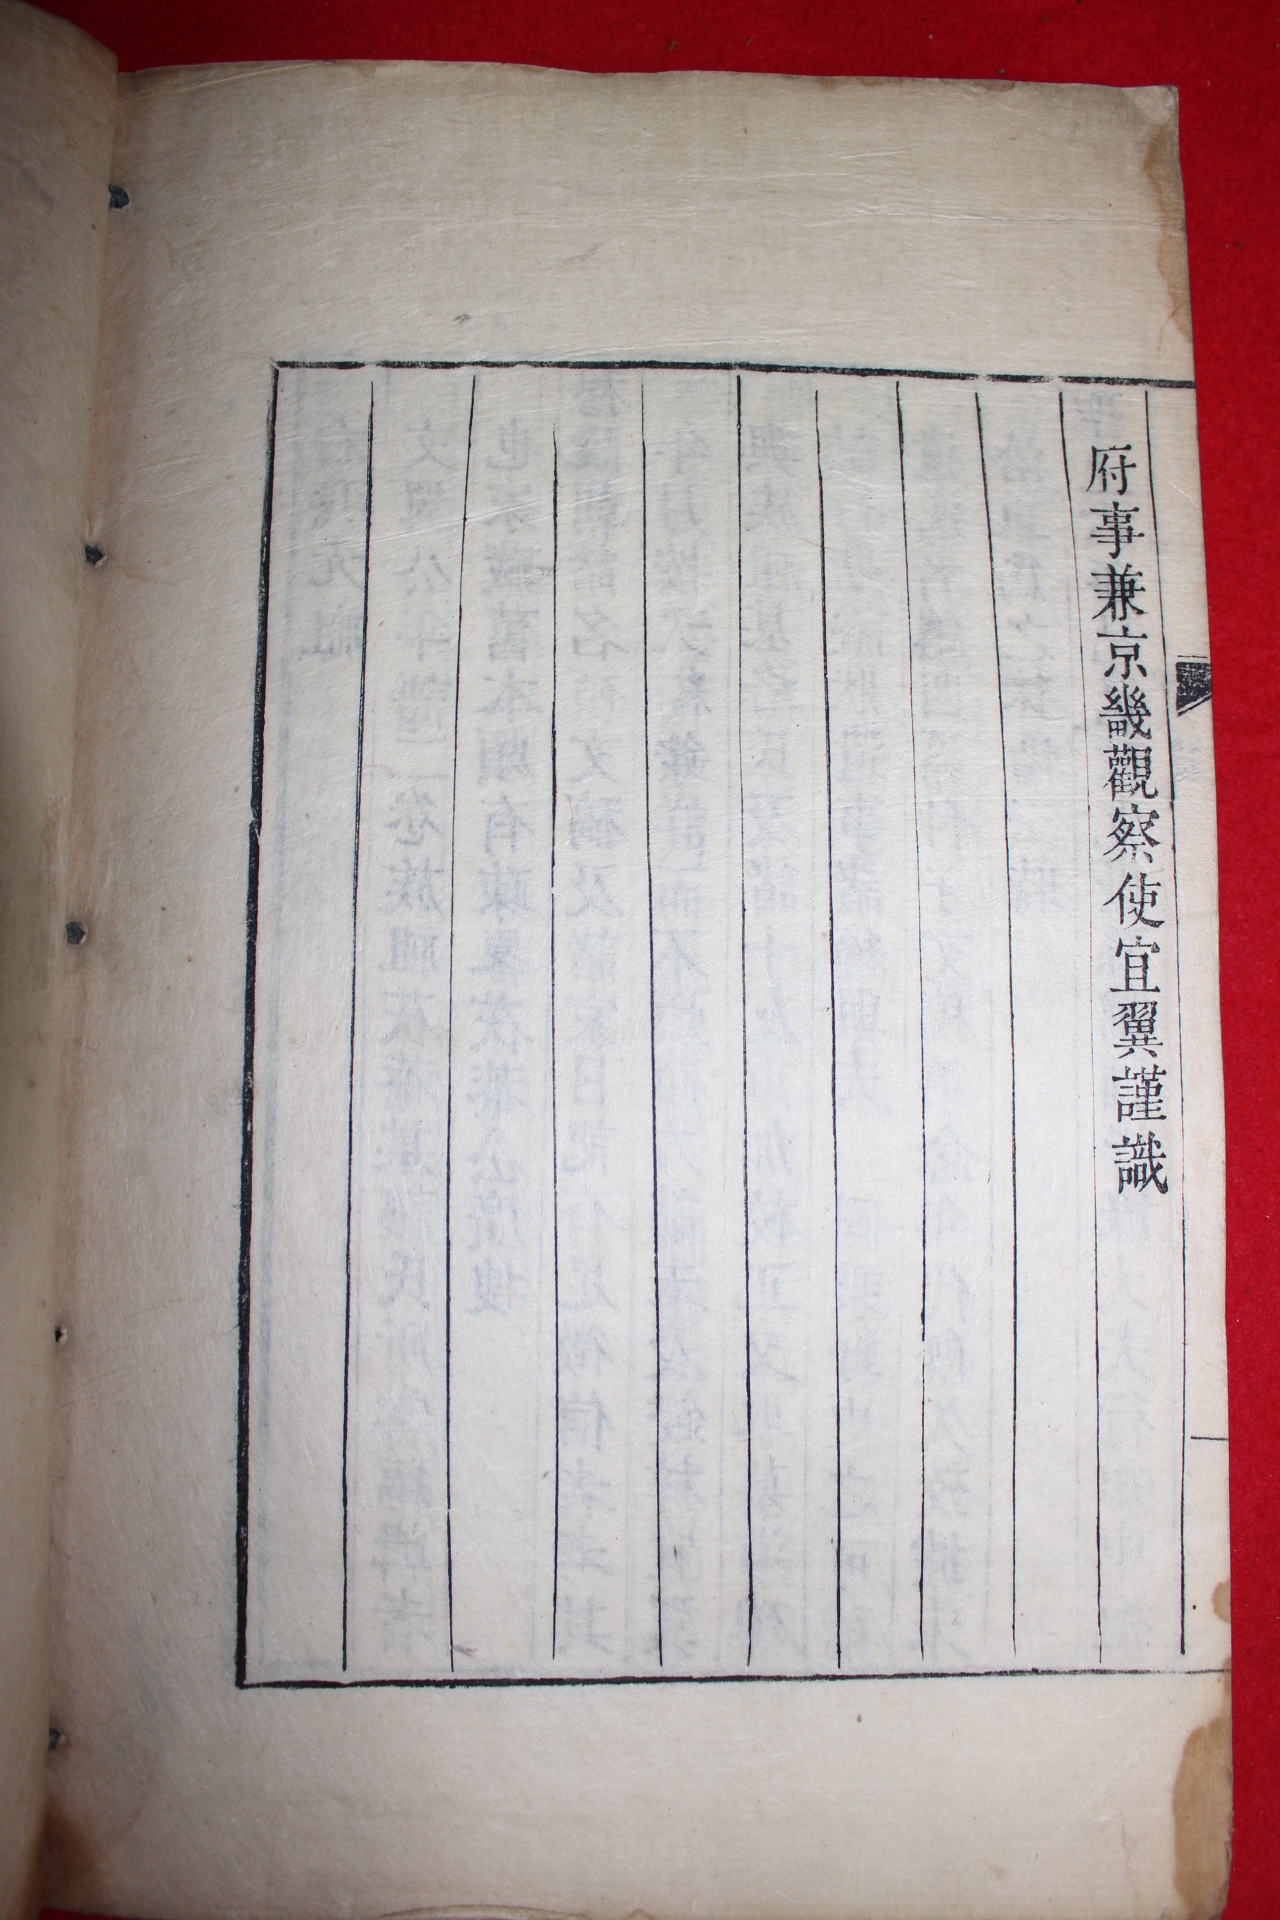 府事兼京畿觀察使宜翼謹識